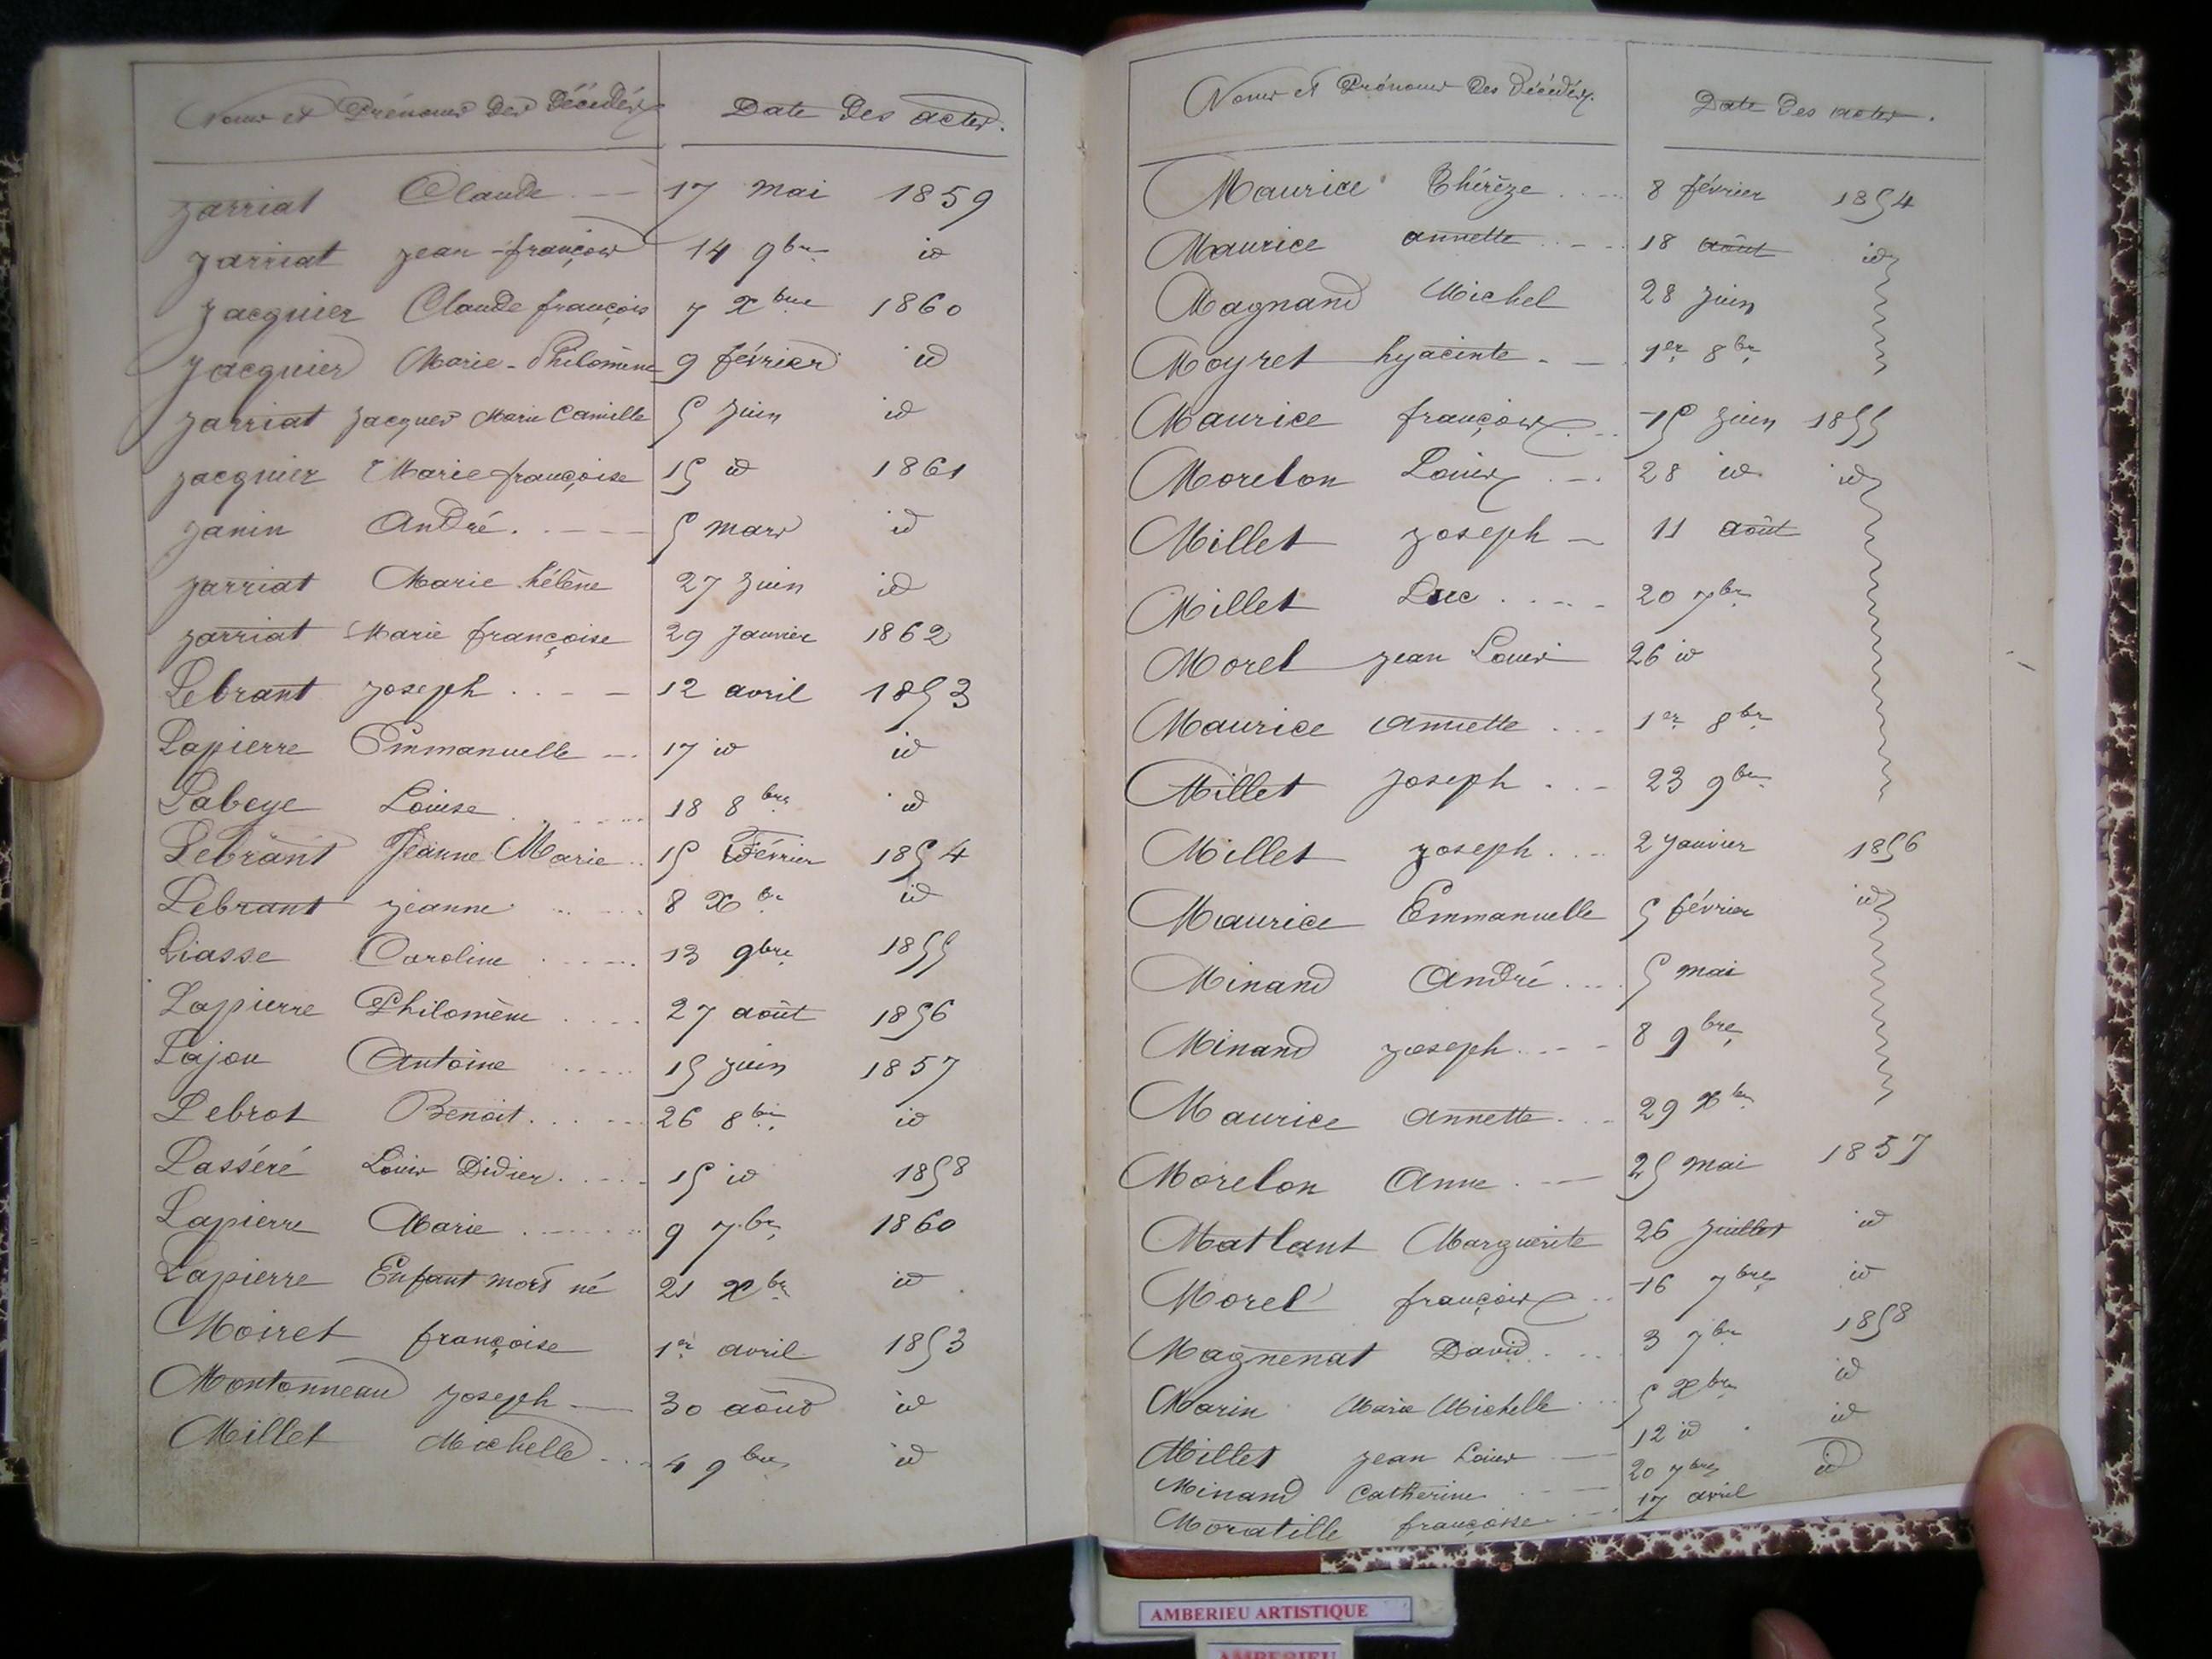 Noms et Prénoms des Décédés
Date des actes.
Jarriat Claude 17 mai 1859
Jarriat Jean-françois 14 9bre id
Jacquier Claude françois 7 Xbre 1860
Jacquier Marie-Philomène 9 février id
Jarriat Jacques Marie Camille 5 Juin id
Jacquier Marie françoise 15 id 1861
Janin André 5 mars id
Jarriat Marie hélène 27 Juin id
Jarriat Marie françoise 29 Janvier 1862
Lebrant Joseph 12 avril 1853
Lapierre Emmanuelle 17 id id
Labeye Louise 18 8bre id
Lebrant Jeanne Marie 15 Février 1854
Lebrant Jeanne 8 Xbre id
Liasse Caroline 13 9bre 1855
Lapierre Philomène 27 août 1856
Lajou Antoine 15 Juin 1857
Lebrot Benoit 26 8bre id
Lasséré Louis Didier 15 id 1858
Lapierre Marie 9 7bre 1860
Lapierre Enfant mort né 21 Xbre id
Moiret françoise 1er avril 1853
Montonneau Joseph 30 août id
Millet Michelle 4 9bre id
Noms et Prénoms des Décédés.
Date des actes.
Maurice Thérèze 8 février 1854
Maurice annette 18 août id
Magnand Michel 28 Juin
Moyret hyacinte 1er 8bre
Maurice françois 15 Juin 1855
Morelon Louis 28 id id
Millet Joseph 11 août
Millet Luc 20 7bre
Morel Jean Louis 26 id
Maurice annette 1er 8bre
Millet Joseph 23 9bre
Millet Joseph 2 Janvier 1856
Maurice Emmanuelle 5 février id
Minand André 5 mai
Minand Joseph 8 9bre
Maurice annette 29 Xbre
Morelon Anne 25 mai 1857
Matlant Marguerite 26 Juillet id
Morel françois 16 7bre id
Magnenat David 3 7bre 1858
Marin Marie Michelle 5 Xbre id
Millet Jean Louis 12 id id
Minand Catherine 20 7bre id
Moratille françoise 17 avril
AMBERIEU ARTISTIQUE
AMBERIEU